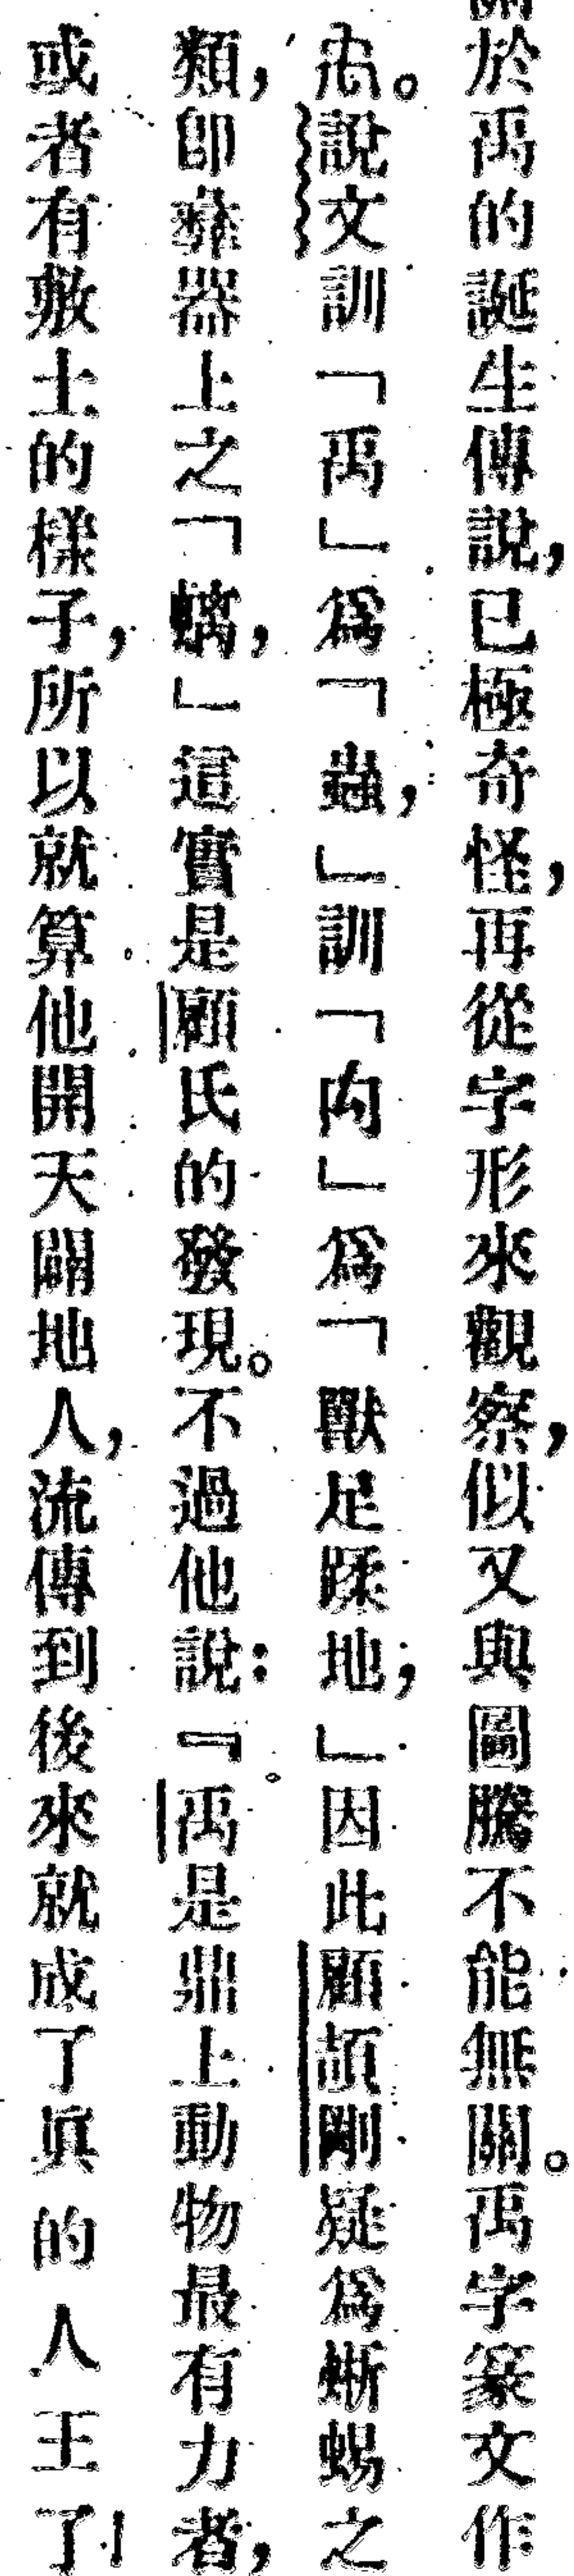 於禹的誕生傳說，已極奇怪，再從字形來觀察，似又與圖騰不能無關。禹字篆文作
。說文訓「禹」爲「蟲，」訓「禸」爲「獸足蹂地；」因此顧頡剛疑爲蜥蜴之
類，卽彝器上之「螭，」這實是顧氏的發現。不過他說：『禹是鼎上動物最有力者，
或者有敷土的樣子，所以就算他開天闢地人，流傳到後來就成了眞的人王了！